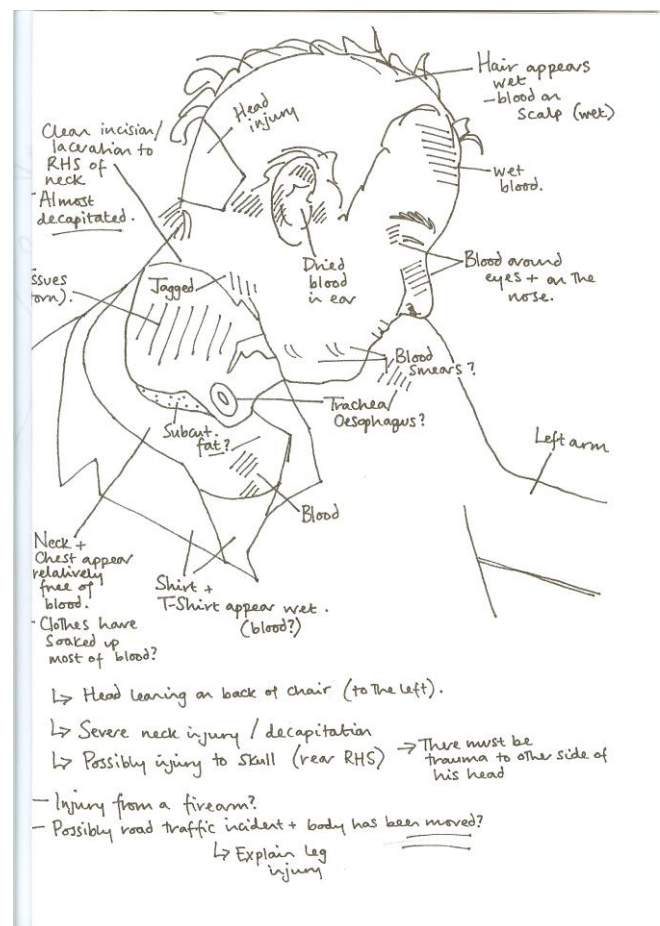 Hair appears
wet
- blood on
scalp (wet)
Head
injury
Clean incision/
laceration to
RHS of
neck
- Almost
decapitated.
wet
blood.
Dried
blood
in ear
Blood around
eyes + on the
nose.
Jagged
issues
orn).
Blood
Smears?
Trachea/
Oesophagus?
Subcut.
fat?
Left arm
Blood
Neck +
Chest appear
relatively
free of
blood.
- Clothes have
soaked up
most of blood?
Shirt +
T-Shirt appear wet.
(blood?)
↳ Head leaning on back of chair (to the left).
↳ Severe neck injury / decapitation
↳ Possibly injury to skull (rear RHS) → There must be
trauma to other side of
his head
- Injury from a firearm?
- Possibly road traffic incident + body has been moved?
↳ Explain leg
injury